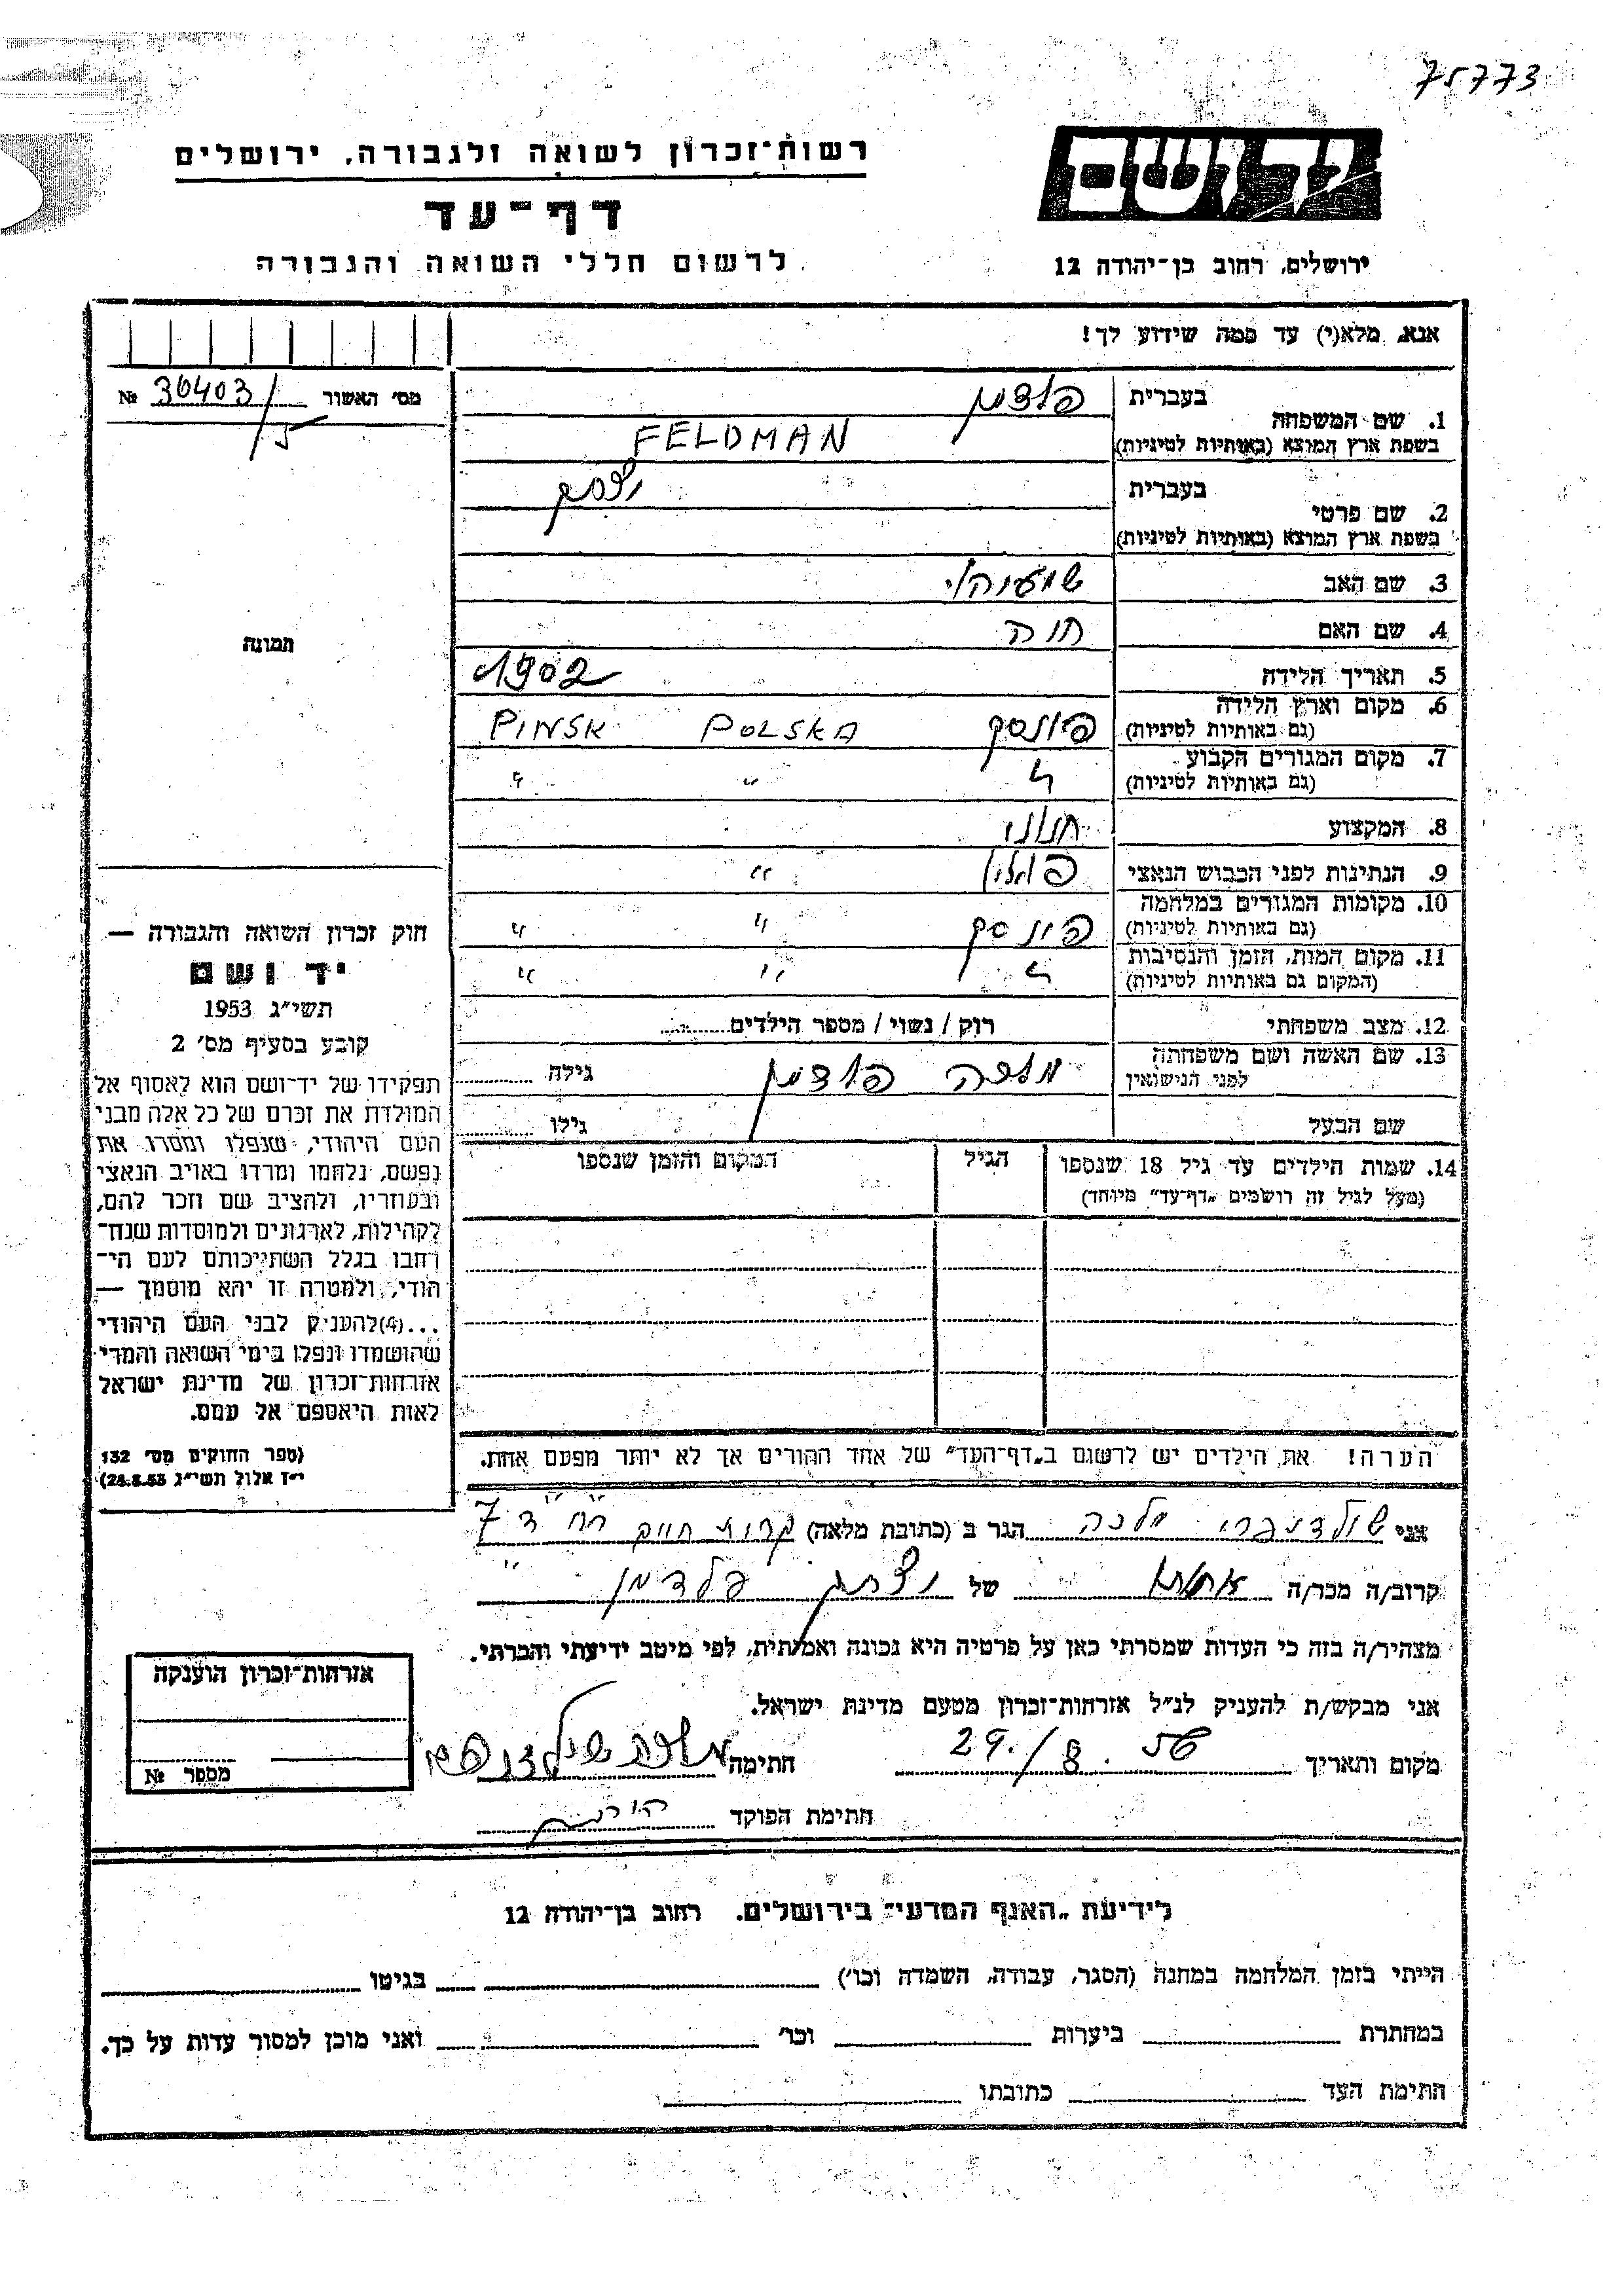 75773
רשות־זכרון לשואה ולגבורה, ירושלים
דף־עד
לרשום חללי השואה והגבורה
יד ושם
ירושלים, רחוב בן־יהודה 12
אנא, מלא(י) עד כמה שידוע לך!
מס׳ האשור 30403/5 №
1. שם המשפחה
בעברית פלדמן
בשפת ארץ המוצא (באותיות לטיניות) FELDMAN
2. שם פרטי
בעברית יצחק
בשפת ארץ המוצא (באותיות לטיניות)
3. שם האב
4. שם האם חוה
5. תאריך הלידה 1902
6. מקום וארץ הלידה
(גם באותיות לטיניות) פינסק POLSKA PINSK
7. מקום המגורים הקבוע
(גם באותיות לטיניות) " " "
8. המקצוע חנוני
9. הנתינות לפני הכבוש הנאצי פולין "
10. מקומות המגורים במלחמה
(גם באותיות לטיניות) פינסק " "
11. מקום המות, הזמן והנסיבות
(המקום גם באותיות לטיניות) " " "
12. מצב משפחתי רוק / נשוי / מספר הילדים
13. שם האשה ושם משפחתה
לפני הנישואין מלכה פלדמן גילה
שם הבעל גילו
14. שמות הילדים עד גיל 18 שנספו
(מעל לגיל זה רושמים „דף־עד״ מיוחד)
הגיל
המקום והזמן שנספו
הערה! את הילדים יש לרשום ב„דף־העד״ של אחד ההורים אך לא יותר מפעם אחת.
תמונה
חוק זכרון השואה והגבורה —
יד ושם
תשי״ג 1953
קובע בסעיף מס׳ 2
תפקידו של יד־ושם הוא לאסוף אל
המולדת את זכרם של כל אלה מבני
העם היהודי, שנפלו ומסרו את
נפשם, נלחמו ומרדו באויב הנאצי
ובעוזריו, ולהציב שם וזכר להם,
לקהילות, לארגונים ולמוסדות שנח־
רבו בגלל השתייכותם לעם הי־
הודי, ולמטרה זו יהא מוסמך —
...(4)להעניק לבני העם היהודי
שהושמדו ונפלו בימי השואה והמרי
אזרחות־זכרון של מדינת ישראל
לאות היאספם אל עמם.
(ספר החוקים מס׳ 132
י״ז אלול תשי״ג 28.8.53)
אני מלכה הגר ב (כתובת מלאה) קרית חיים ד 7
קרוב/ה מכר/ה של יצחק פלדמן
מצהיר/ה בזה כי העדות שמסרתי כאן על פרטיה היא נכונה ואמתית, לפי מיטב ידיעתי והכרתי.
אני מבקש/ת להעניק לנ״ל אזרחות־זכרון מטעם מדינת ישראל.
מקום ותאריך 29./8. 56 חתימה מלכה
חתימת הפוקד
אזרחות־זכרון הוענקה
מספר №
לידיעת „האגף המדעי״ בירושלים. רחוב בן־יהודה 12
הייתי בזמן המלחמה במחנה (הסגר, עבודה, השמדה וכו׳) בגיטו
במחתרת ביערות וכו׳ ואני מוכן למסור עדות על כך.
חתימת העד כתובתו